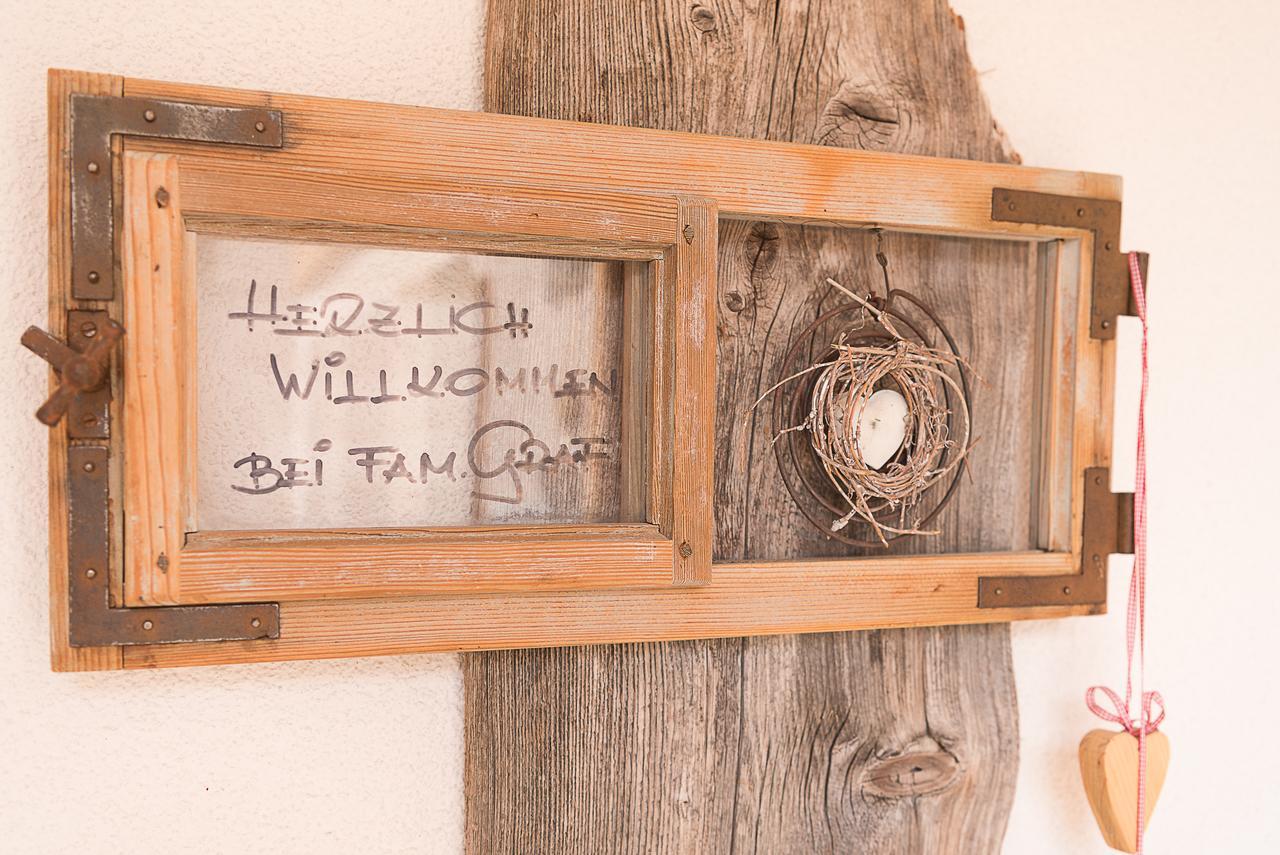 HERZLiCH
WiLLKOMMEN
BEi FAM. GRAF